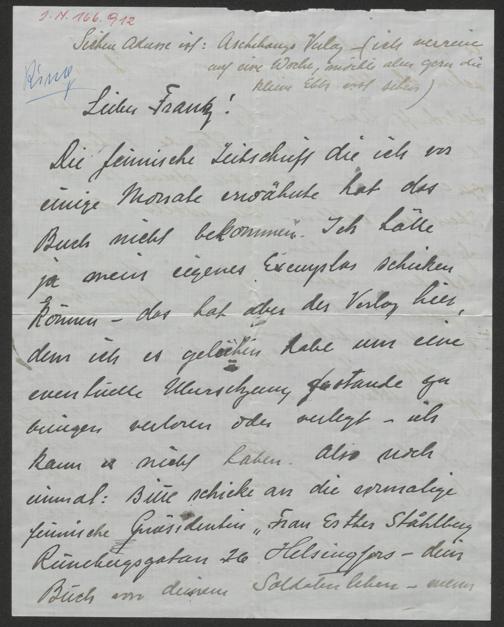 J.N. 166.912
Adresse ist: Aschehougs Verlag – (ich verreise
auf eine Woche, möchte aber gern die
kleine erst sehen)
Lieber Frank!
Die finnische Zeitschrift die ich vor
einige Monate erwähnte hat das
Buch nicht bekommen. Ich hätte
ja mein eigenes Exemplar schicken
können – das hat aber der Verlag hier,
dem ich es geliehen habe um eine
eventuelle Übersetzung zustande zu
bringen verloren oder verlegt – ich
kann es nicht haben. Also noch
einmal: Bitte schicke an die vormalige
finnische Präsidentin „Frau Esther Ståhlberg
Runebergsgatan 26 Helsingfors – dein
Buch von deinem Soldatenleben – wenn